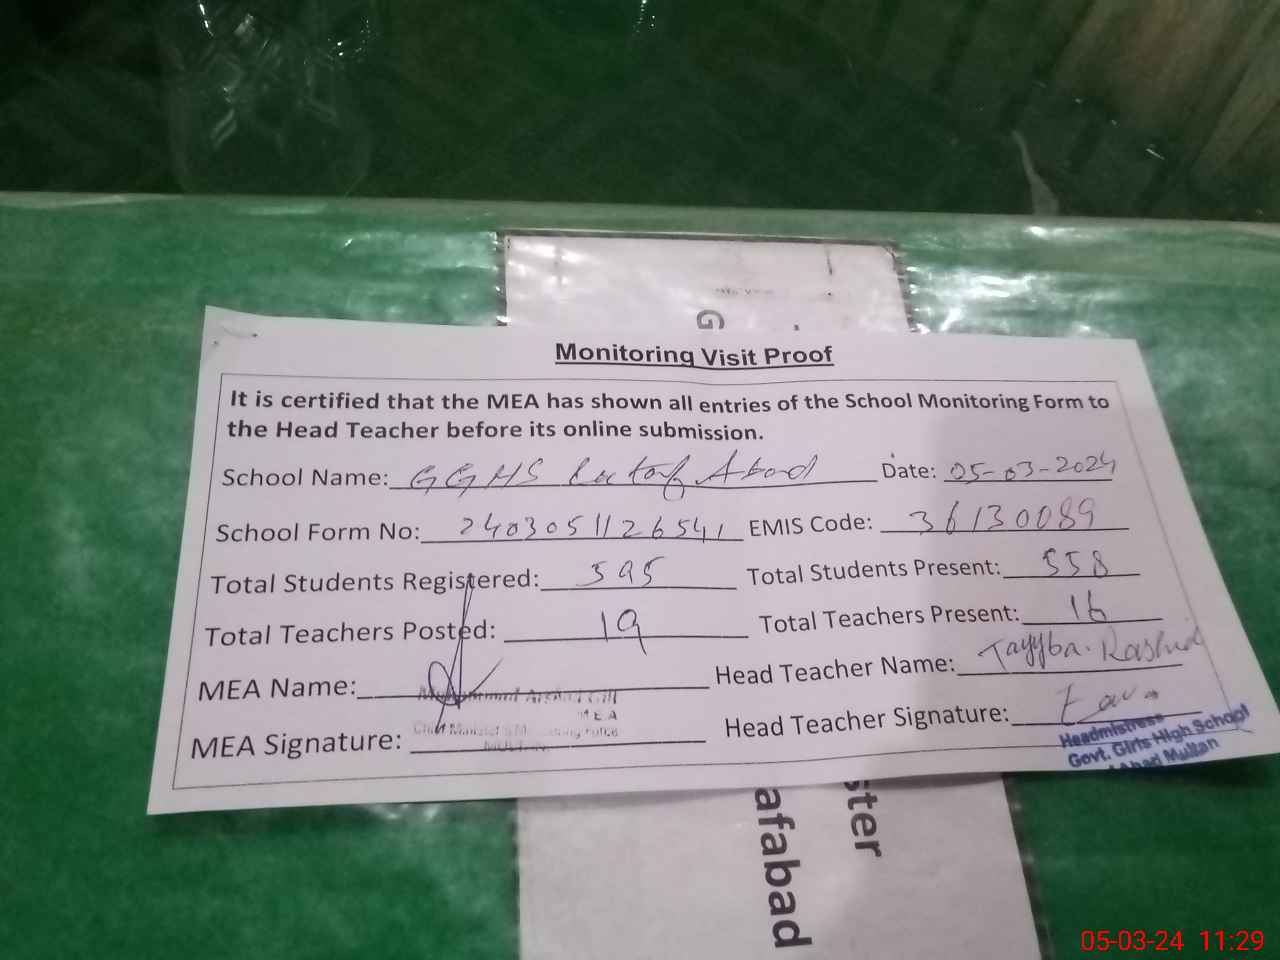 G
Monitoring Visit Proof
It is certified that the MEA has shown all entries of the School Monitoring Form to
the Head Teacher before its online submission.
School Name: GGHS Abad Date: 05-03-2024
School Form No: 2403051126541 EMIS Code: 36130089
Total Students Registered: 595 Total Students Present: 558
Total Teachers Posted: 19 Total Teachers Present: 16
MEA Name: Head Teacher Name: Tayyba. Rashid
Muhammad Arshad Gill
MEA
Chief Minister's Monitoring Force
MULTAN
MEA Signature: Head Teacher Signature:
Headmistress
Govt. Girls High School
Abad Multan
ster
afabad
05-03-24 11:29